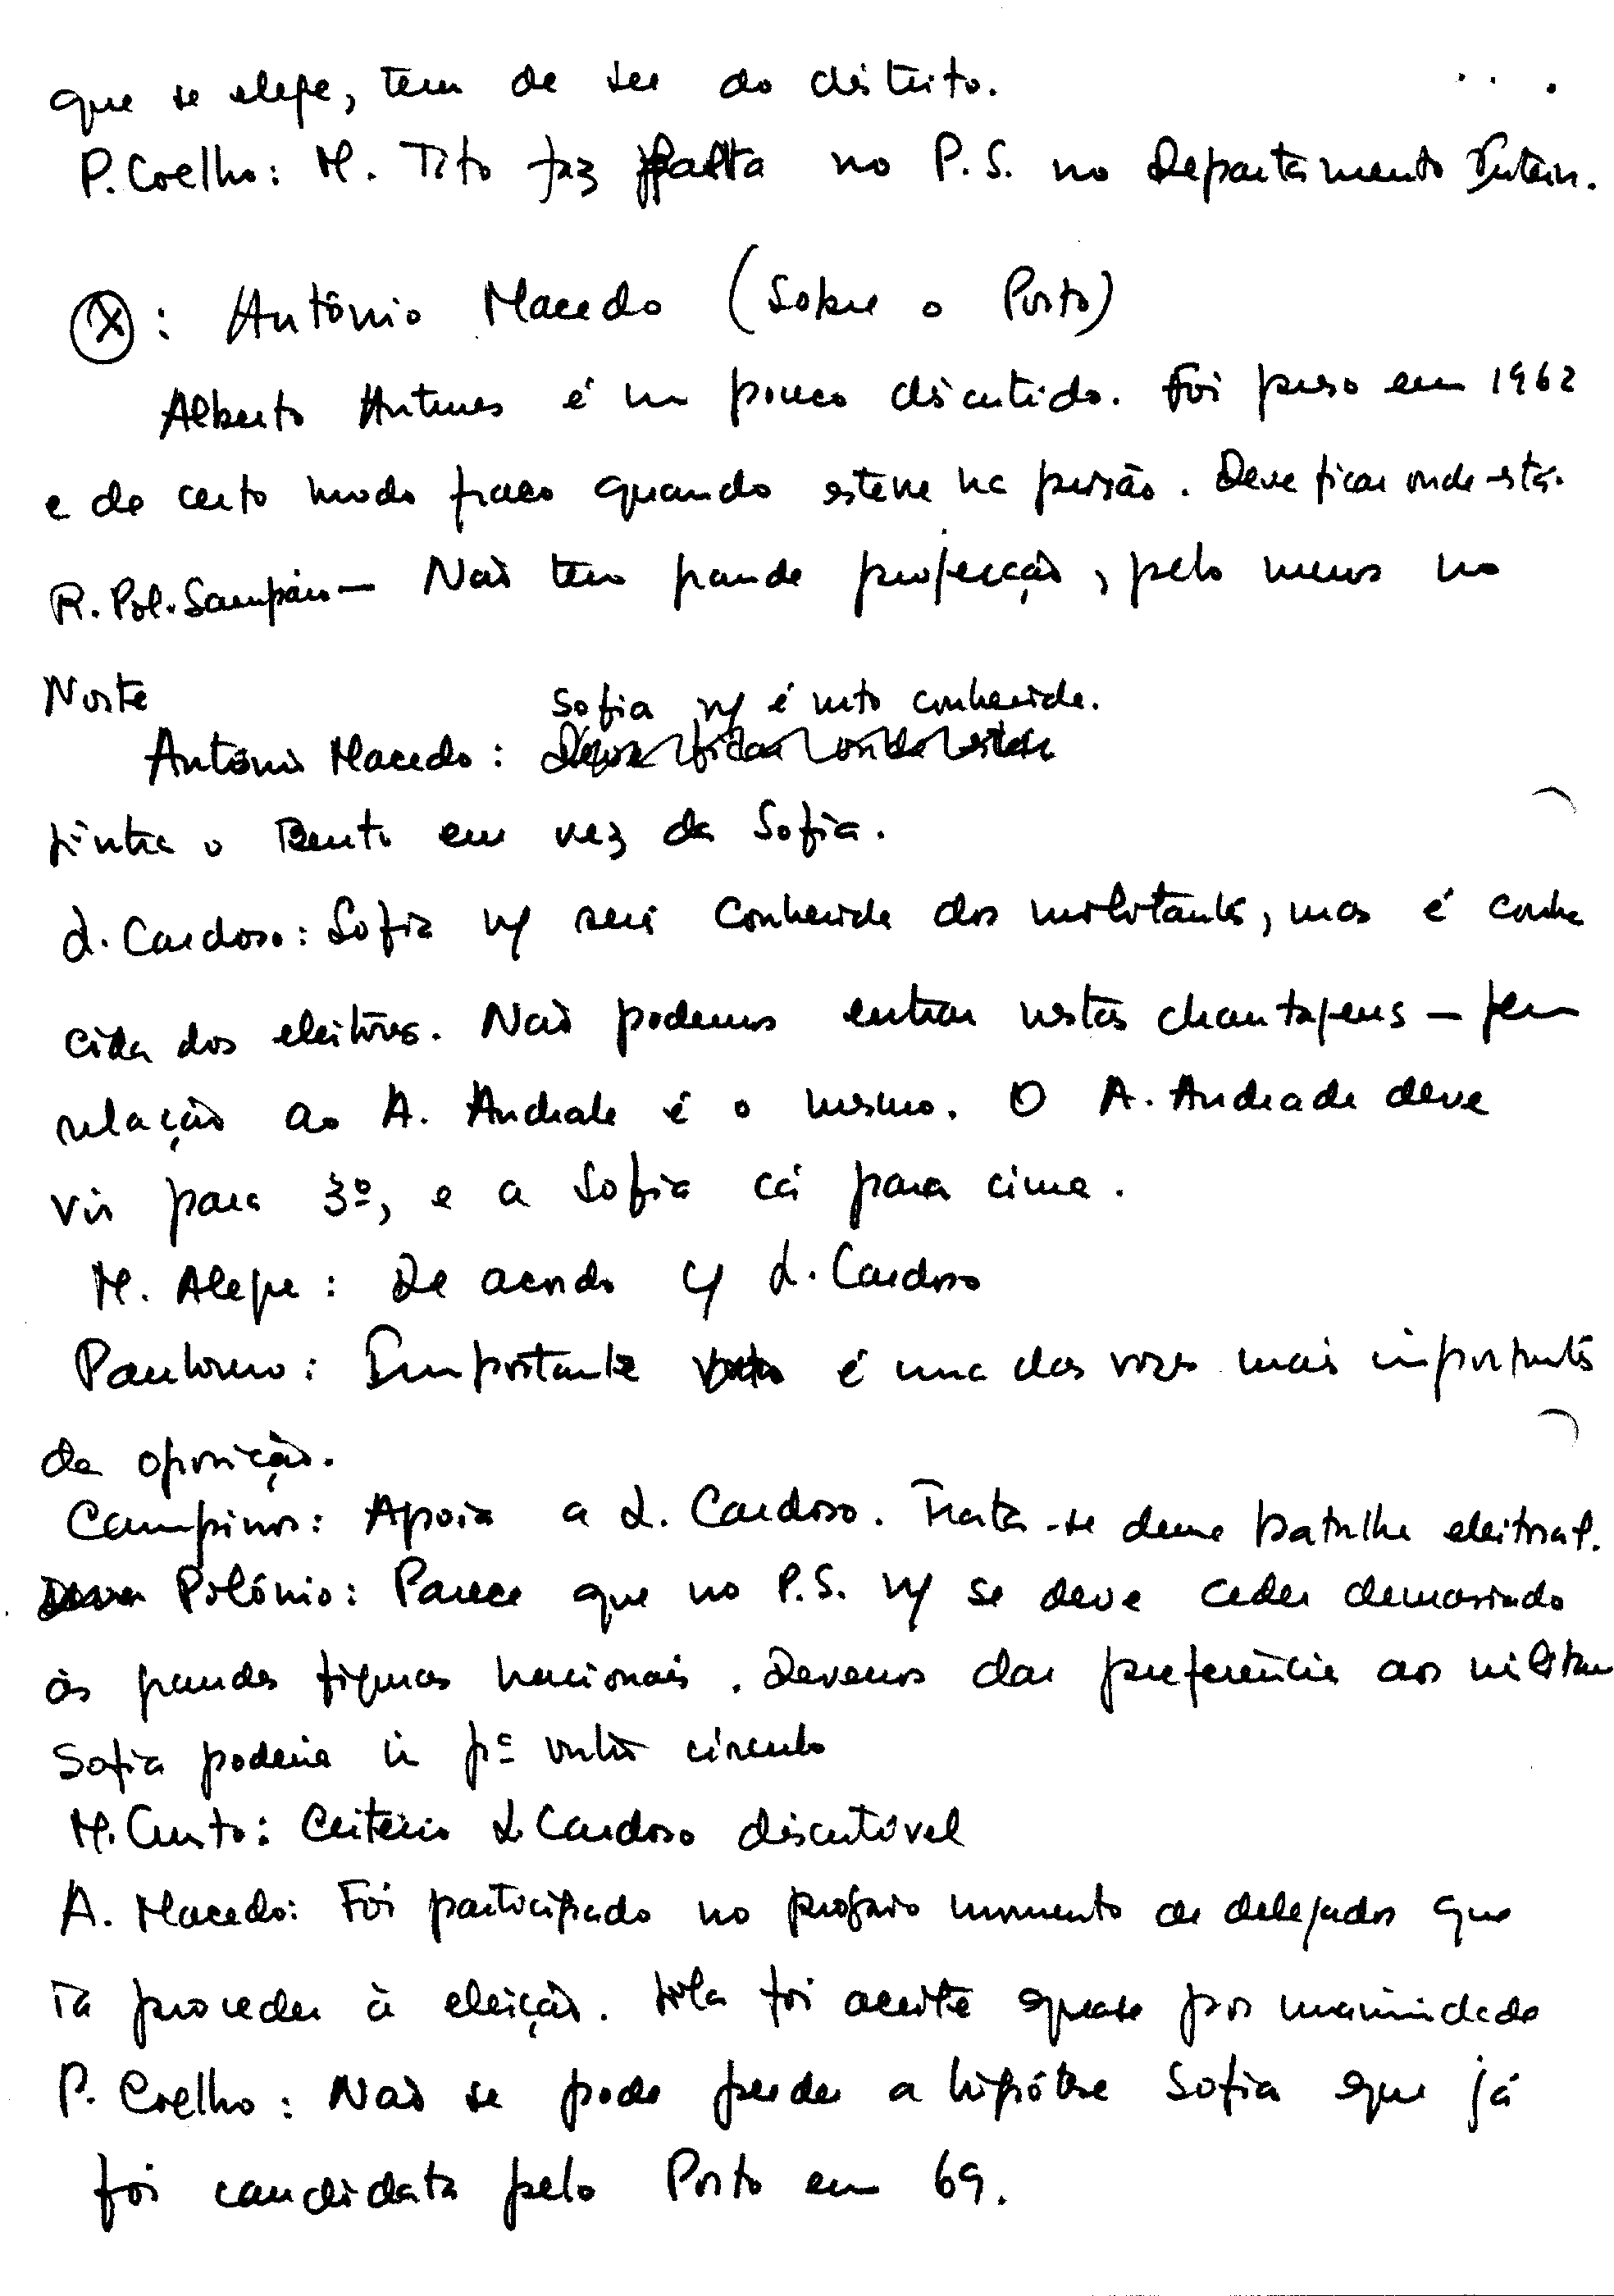 que se elege, tem de ser do distrito.
P. Coelho: M. Tito faz falta no P.S. no Departamento Intern.
(X): António Macedo (Sobre o Porto)
Alberto Antunes é um pouco discutido. Foi preso em 1962
e de certo modo fraco quando esteve na prisão. Deve ficar onde está.
R. Pol. Sampaio — Não tem grande projecção, pelo menos no
Norte
Sofia ñ é mto conhecida.
António Macedo:
Punha o Bento em vez da Sofia.
L. Cardoso: Sofia ñ será conhecida dos militantes, mas é conhe
cida dos eleitores. Não podemos entrar nestas chantagens — em
relação ao A. Andrade é o mesmo. O A. Andrade deve
vir para 3º, e a Sofia cá para cima.
M. Alegre: De acordo c/ L. Cardoso
Importante é uma das vozes mais importantes
da oposição.
Campinos: Apoia a L. Cardoso. Trata-se duma batalha eleitoral.
Polónio: Parece que no P.S. ñ se deve ceder demasiado
às grandes figuras nacionais. Devemos dar preferência aos militan
Sofia poderia ir pª outro círculo
M. Custo: Critério L. Cardoso discutível
A. Macedo: Foi participado no próprio momento de delegados que
ia proceder à eleição. foi aceite quase por unanimidade
P. Coelho: Não se pode perder a hipótese Sofia que já
foi candidata pelo Porto em 69.